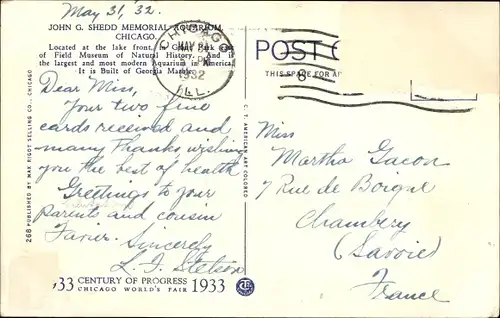 May 31, '32.
JOHN G. SHEDD MEMORIAL AQUARIUM,
CHICAGO.
Located at the lake front, in Grant Park east
of Field Museum of Natural History. And is
the largest and most modern Aquarium in America.
It is Built of Georgia Marble.
CHICAGO
MAY 31
PM
1932
ILL.
POST C
THIS SPACE FOR
Dear Miss,
Your two fine
cards received and
many thanks wishing
you the best of health
Greetings to your
Parents and cousin
Favier. Sincerely
L. F. Stetson
Miss
Martha Gacon
7 Rue de Boigne
Chambery
(Savoie)
France
268 PUBLISHED BY MAX RIGOT SELLING CO., CHICAGO
C. T. AMERICAN ART COLORED
33 CENTURY OF PROGRESS 1933
CHICAGO WORLD'S FAIR